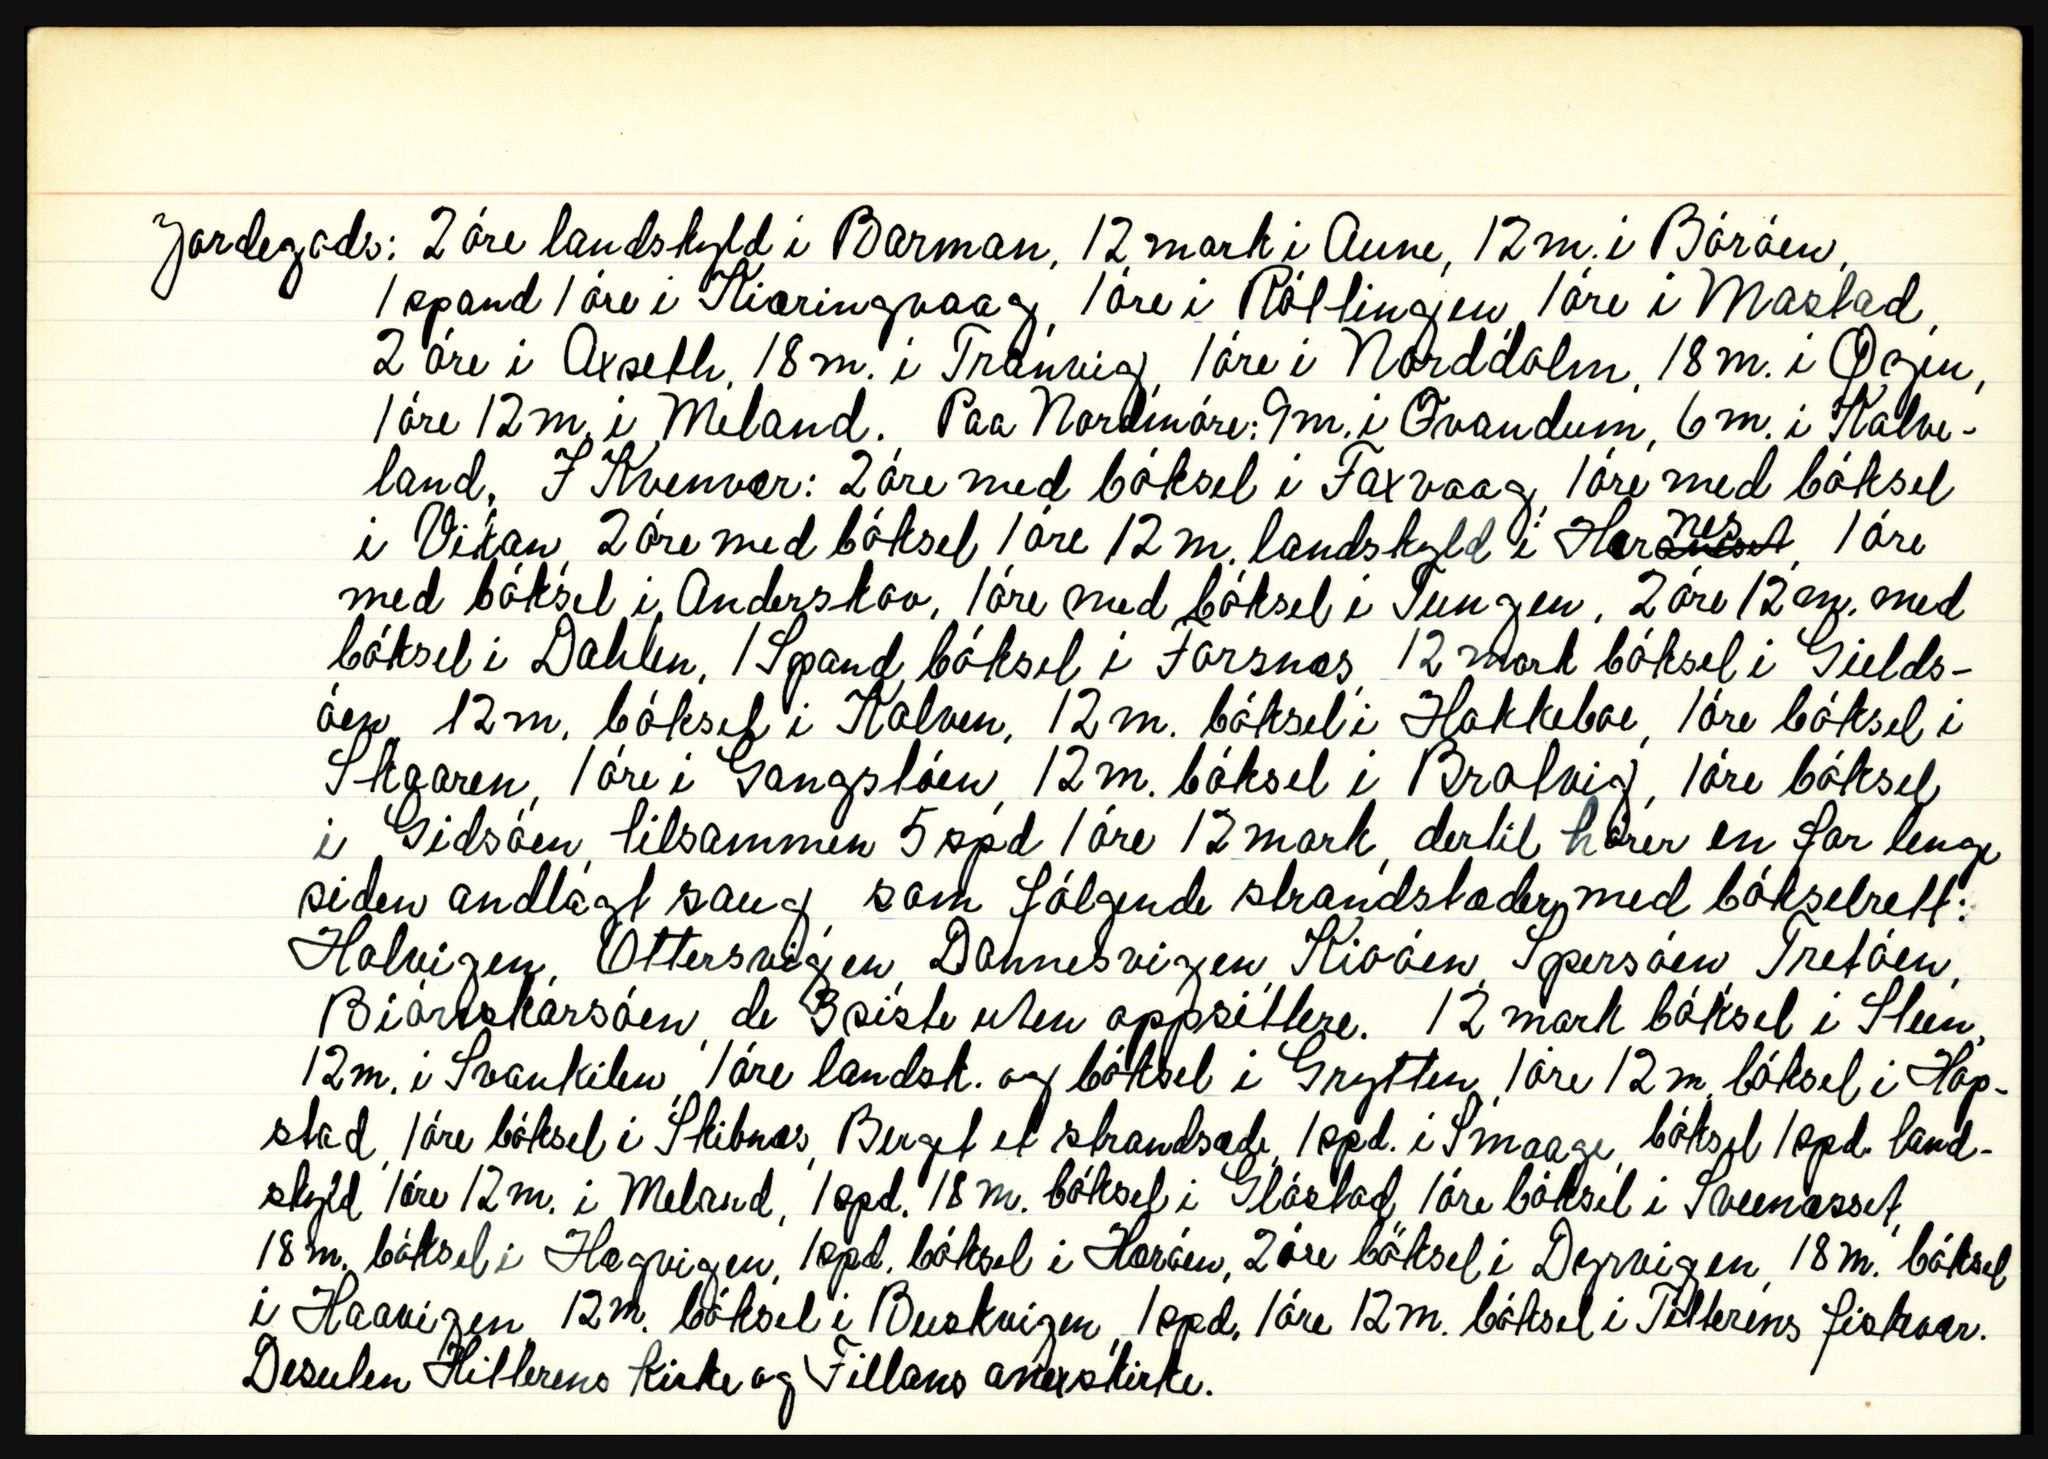 Jordegods: 2 óre landskyld i Barman, 12 mark i Aune, 12 m. i Bóróen,
1 spand 1 óre i Kiæringvaag, 1 óre i Róllingen, 1 óre i Mastad,
2 óre i Axseth, 18 m. i Tranvig, 1 óre i Norddalm, 18 m. i Øyen,
1 óre 12 m. i Meland. Paa Nordmóre: 9 m. i Ovandum, 6 m. i Kalve-
land. I Kvenvær: 2 óre med bóksel i Faxvaag, 1 óre med bóksel
i Vikan, 2 óre med bóksel 1 óre 12 m. landskyld i Hernes, 1 óre
med bóksel i Anderskov, 1 óre med bóksel i Tungen, 2 óre 12 m. med
bóksel i Dahlen, 1 Spand bóksel i Forsnes, 12 mark bóksel i Gields-
óen, 12 m. bóksel i Kalven, 12 m. bóksel i Hakkeboe, 1 óre bóksel i
Skaaren, 1 óre i Gangstóen, 12 m. bóksel i Bratvig, 1 óre bóksel
i Gidsóen, tilsammen 5 spd 1 óre 12 mark, dertil hórer en for lenge
siden ródlagt saug som fólgende strandstæder med bókselrett:
Holvigen, Ottersvigen, Dannesvigen, Kioóen, Spersóen, Tretóen,
Biórnskórsóen, de 3 siste uten oppsittere. 12 mark bóksel i Steen,
12 m. i Svankilen, 1 óre landsk. og bóksel i Grytten, 1 óre 12 m. bóksel i Hop-
stad, 1 óre bóksel i Skibnes, Berget et strandsæde, 1 spd. i Smaage, bóksel 1 spd. land-
skyld 1 óre 12 m. i Meland, 1 spd. 18 m. bóksel i Glóstad, 1 óre bóksel i Sveenæsset,
18 m. bóksel i Hegvigen, 1 spd. bóksel i Heróen, 2 óre böksel i Dyrvigen, 18 m. bóksel
i Haavigen, 12 m. bóksel i Buskvigen, 1 spd. 1 óre 12 m. bóksel i Titterens fiskvær.
Desuten Hitterens kirke og Fillans anexskirke.